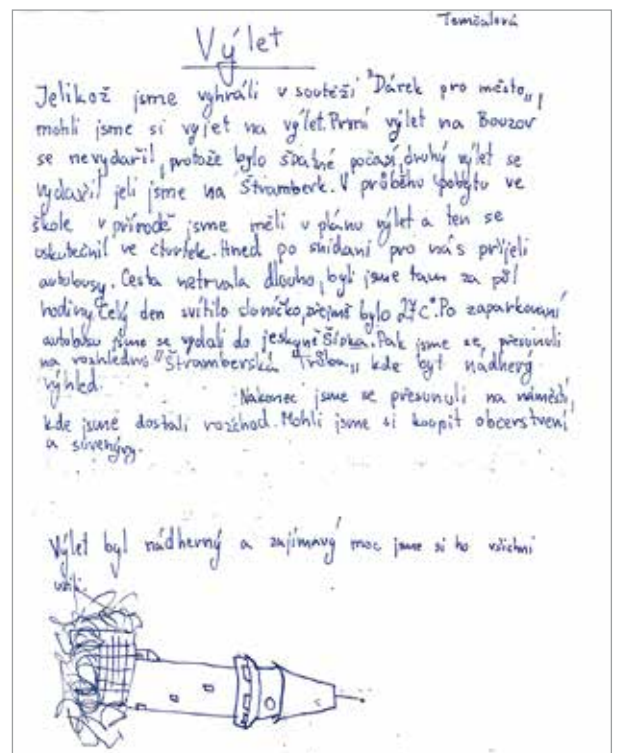 Temčalová
Výlet
Jelikož jsme vyhráli v soutěži "Dárek pro město„,
mohli jsme si vyjet na výlet. První výlet na Bouzov
se nevydařil, protože bylo špatné počasí, druhý výlet se
vydařil jeli jsme na Štramberk. V průběhu pobytu ve
škole v přírodě jsme měli v plánu výlet a ten se
uskutečnil ve čtvrtek. Hned po snídani pro nás přijeli
autobusy. Cesta netrvala dlouho, byli jsme tam za půl
hodiny. Celý den svítilo sluníčko, zřejmě bylo 27c°. Po zaparkovaní
autobusu jsme se vydali do jeskyně Šipka. Pak jsme se přesunuli
na rozhlednu "Štramberská Trúba„ kde byl nádherý
výhled.
Nakonec jsme se přesunuli na náměstí,
kde jsme dostali rozchod. Mohli jsme si koupit občerstvení
a suvenýry.
Výlet byl nádherný a zajímavý moc jsme si ho všichni
užili.